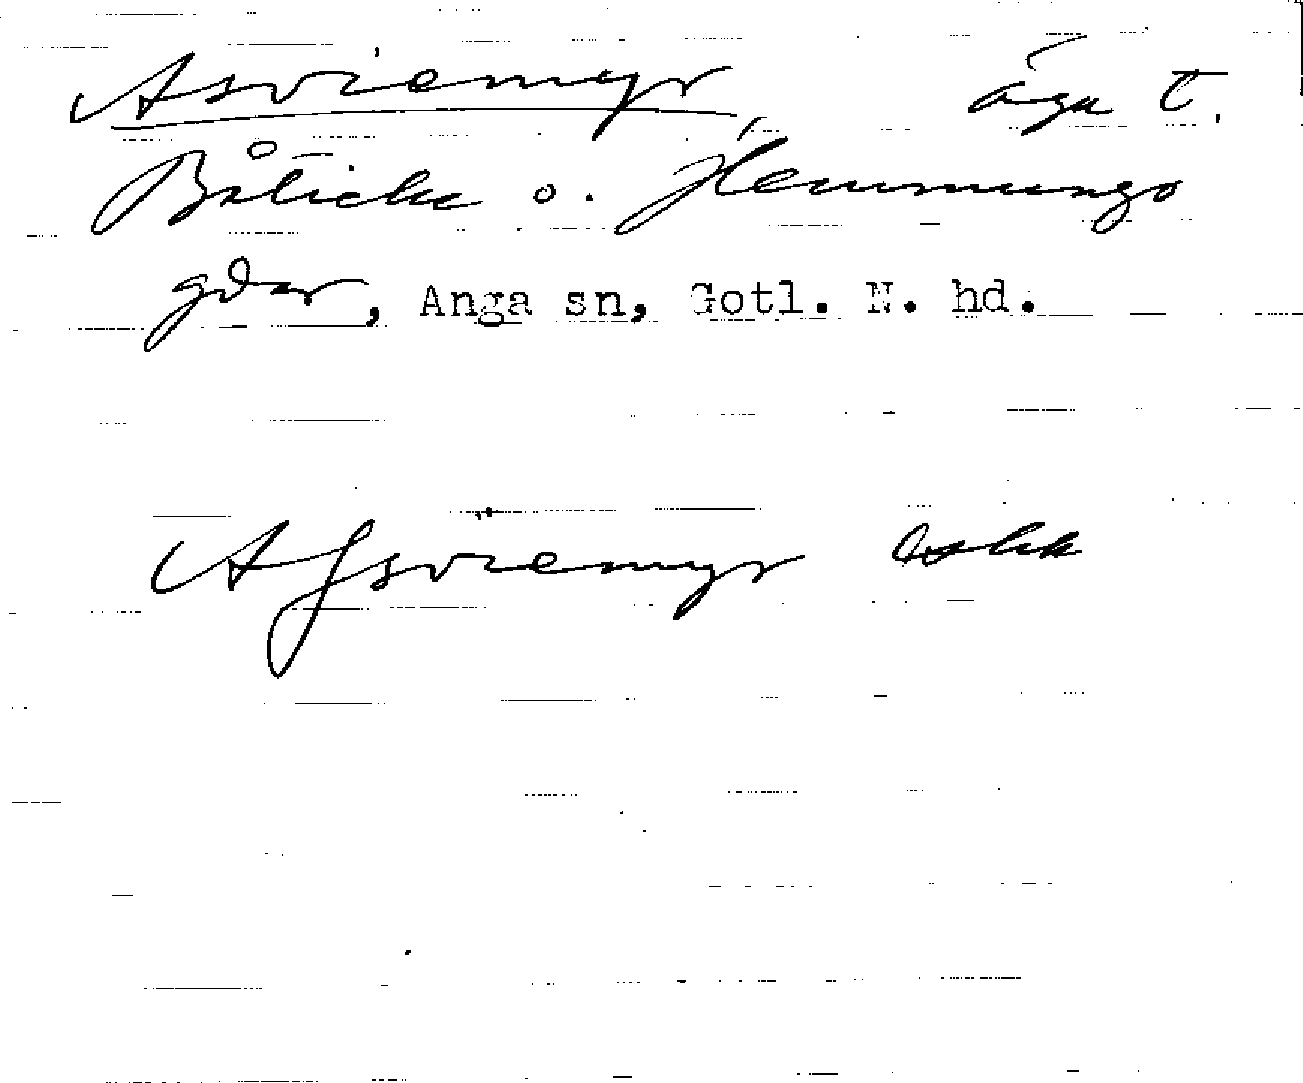 Asviemyr äga t.
Båticke o. Hemmungs
gdar, Anga sn, Gotl. N. hd.
Asviemyr